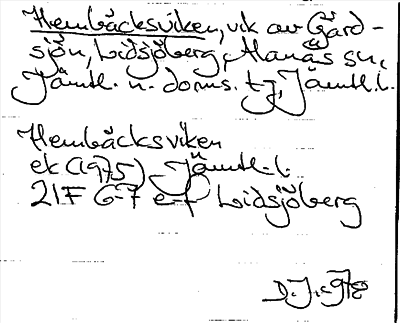 Hembäcksviken, vik av Gärd-
sjön, Lidsjöberg, Alanäs sn,
Jämtl. n. doms. tg, Jämtl. l.
Hembäcksviken
ek (1975) Jämtl. l.
21F 6-7 e-f Lidsjöberg
D.J. 1978